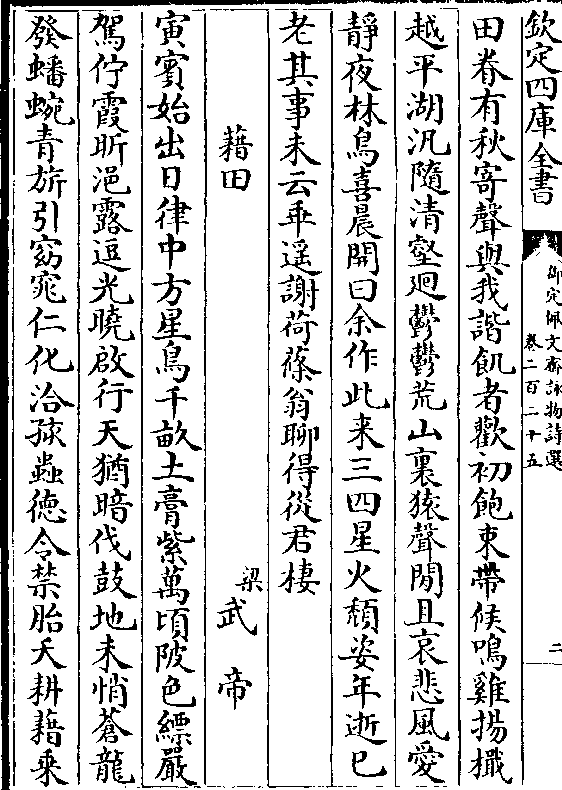 欽定四庫全書
御定佩文齋詠物詩選
卷二百二十五
二
田眷有秋寄聲與我諧飢者歡初飽束帶候鳴雞揚檝
越平湖汎隨清壑廻鬱鬱荒山裏猿聲閒且哀悲風愛
靜夜林鳥喜晨開曰余作此来三四星火頽姿年逝已
老其事未云乖遥謝荷蓧翁聊得從君棲
藉田
梁武帝
寅賓始出日律中方星鳥千畝土膏紫萬頃陂色縹嚴
駕佇霞昕浥露逗光曉啟行天猶暗伐鼓地未悄蒼龍
發蟠蜿青旂引窈窕仁化洽孩蟲德令禁胎夭耕藉乗